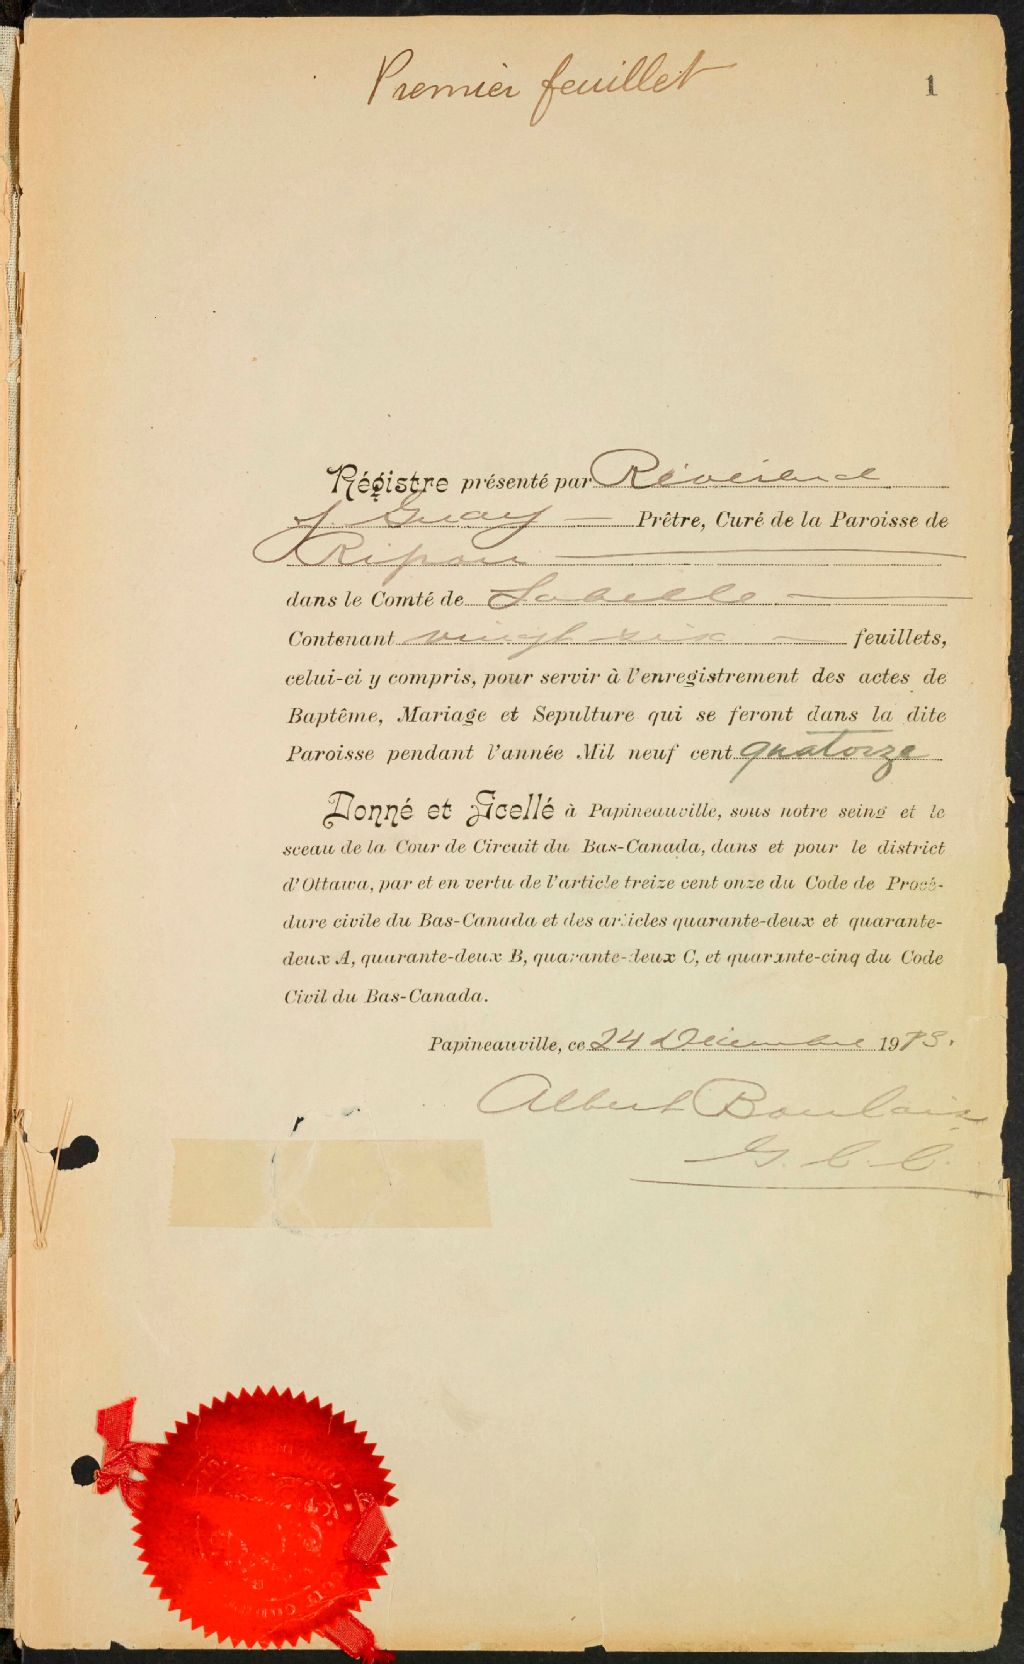 Premier feuillet
1
Régistre présenté par Révérend
J. Guay — Prêtre, Curé de la Paroisse de
Ripon
dans le Comté de Labelle
Contenant vingt six feuillets,
celui-ci y compris, pour servir à l'enregistrement des actes de
Baptême, Mariage et Sepulture qui se feront dans la dite
Paroisse pendant l'année Mil neuf cent quatorze
Donné et Scellé à Papineauville, sous notre seing et le
sceau de la Cour de Circuit du Bas-Canada, dans et pour le district
d'Ottawa, par et en vertu de l'article treize cent onze du Code de Procé-
dure civile du Bas-Canada et des articles quarante-deux et quarante-
deux A, quarante-deux B, quarante-deux C, et quarante-cinq du Code
Civil du Bas-Canada.
Papineauville, ce 24 Décembre 1913.
Albert
G. C. C.